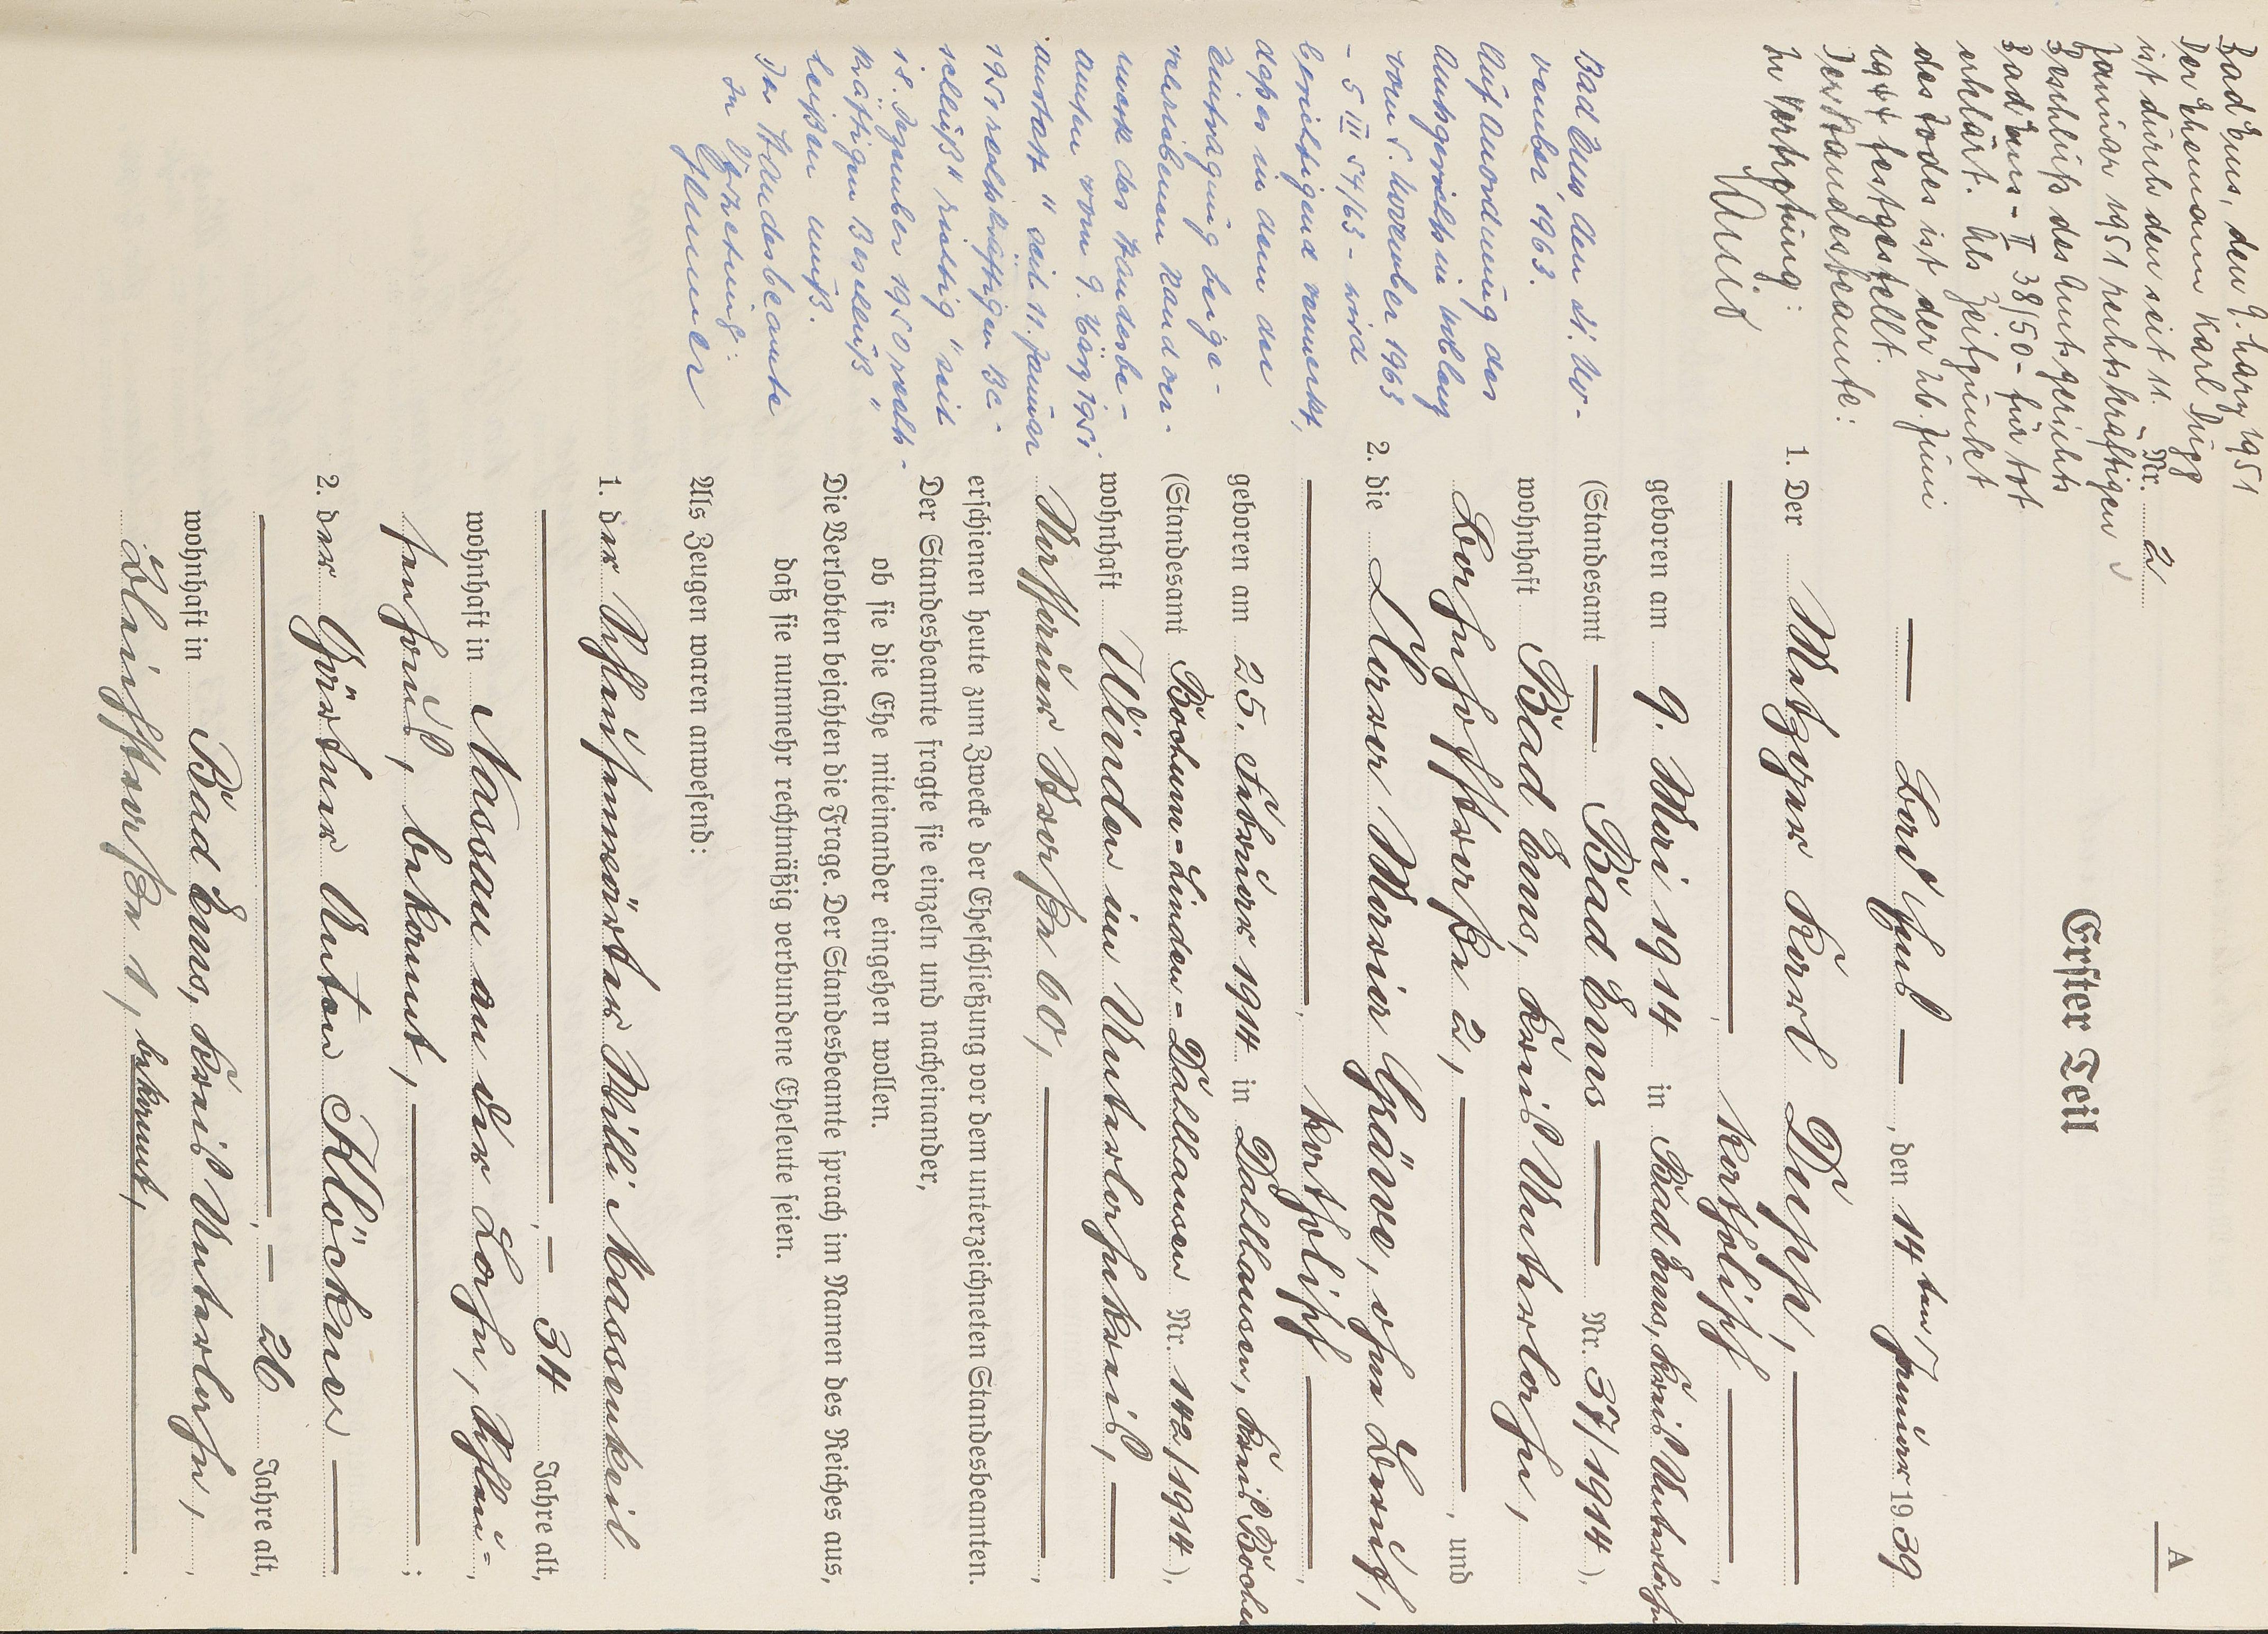 A
Nr. 2
Erster Teil
Bad Ems, den 14ten Januar 1939
1. Der Metzger Karl Dupp,
katholisch
geboren am 9. Mai 1914 in Bad Ems, Kreis Unterlahn
(Standesamt Bad Ems Nr. 37/1914),
wohnhaft Bad Ems, Kreis Unterlahn,
Bahnhofstraße 2, und
2. die Clara Maria Gräwe, ohne Beruf,
katholisch
geboren am 25. Februar 1914 in Dahlhausen, Kreis Bochum
(Standesamt Bochum-Linden-Dahlhausen Nr. 142/1914),
wohnhaft Winden im Unterlahnkreis,
straße 60,
erschienen heute zum Zwecke der Eheschließung vor dem unterzeichneten Standesbeamten.
Der Standesbeamte fragte sie einzeln und nacheinander,
ob sie die Ehe miteinander eingehen wollen.
Die Verlobten bejahten die Frage. Der Standesbeamte sprach im Namen des Reiches aus,
daß sie nunmehr rechtmäßig verbundene Eheleute seien.
Als Zeugen waren anwesend:
1. der Willi Massenkeil
34 Jahre alt,
wohnhaft in Nassau an der Lahn,
bekannt,
2. der Gärtner Anton Klöckner
26 Jahre alt,
wohnhaft in Bad Ems, Kreis Unterlahn,
Bleichstraße 1, bekannt,
Bad Ems, den 9. März 1951
Der Ehemann Karl Dupp
ist durch den seit 11.
Januar 1951 rechtskräftigen
Beschluß des Amtsgerichts
Bad Ems - II 38/50 - für tot
erklärt. Als Zeitpunkt
des Todes ist der 26. Juni
1944 festgestellt.
Der Standesbeamte:
In Vertretung:
Bad Ems den 21. No-
vember 1963.
Auf Anordnung des
Amtsgerichts in Koblenz
vom 5. November 1963
- 5 III 54/63 - wird
berichtigend vermerkt,
daß es in dem der
Eintragung beige-
schriebenen Randver-
merk des Standesbe-
amten vom 9. März 1951
anstatt "seit 11. Januar
1951 rechtskräftigen Be-
schluß" richtig "seit
18. Dezember 1950 rechts-
kräftigen Beschluß"
heißen muß.
Der Standesbeamte
In Vertretung: